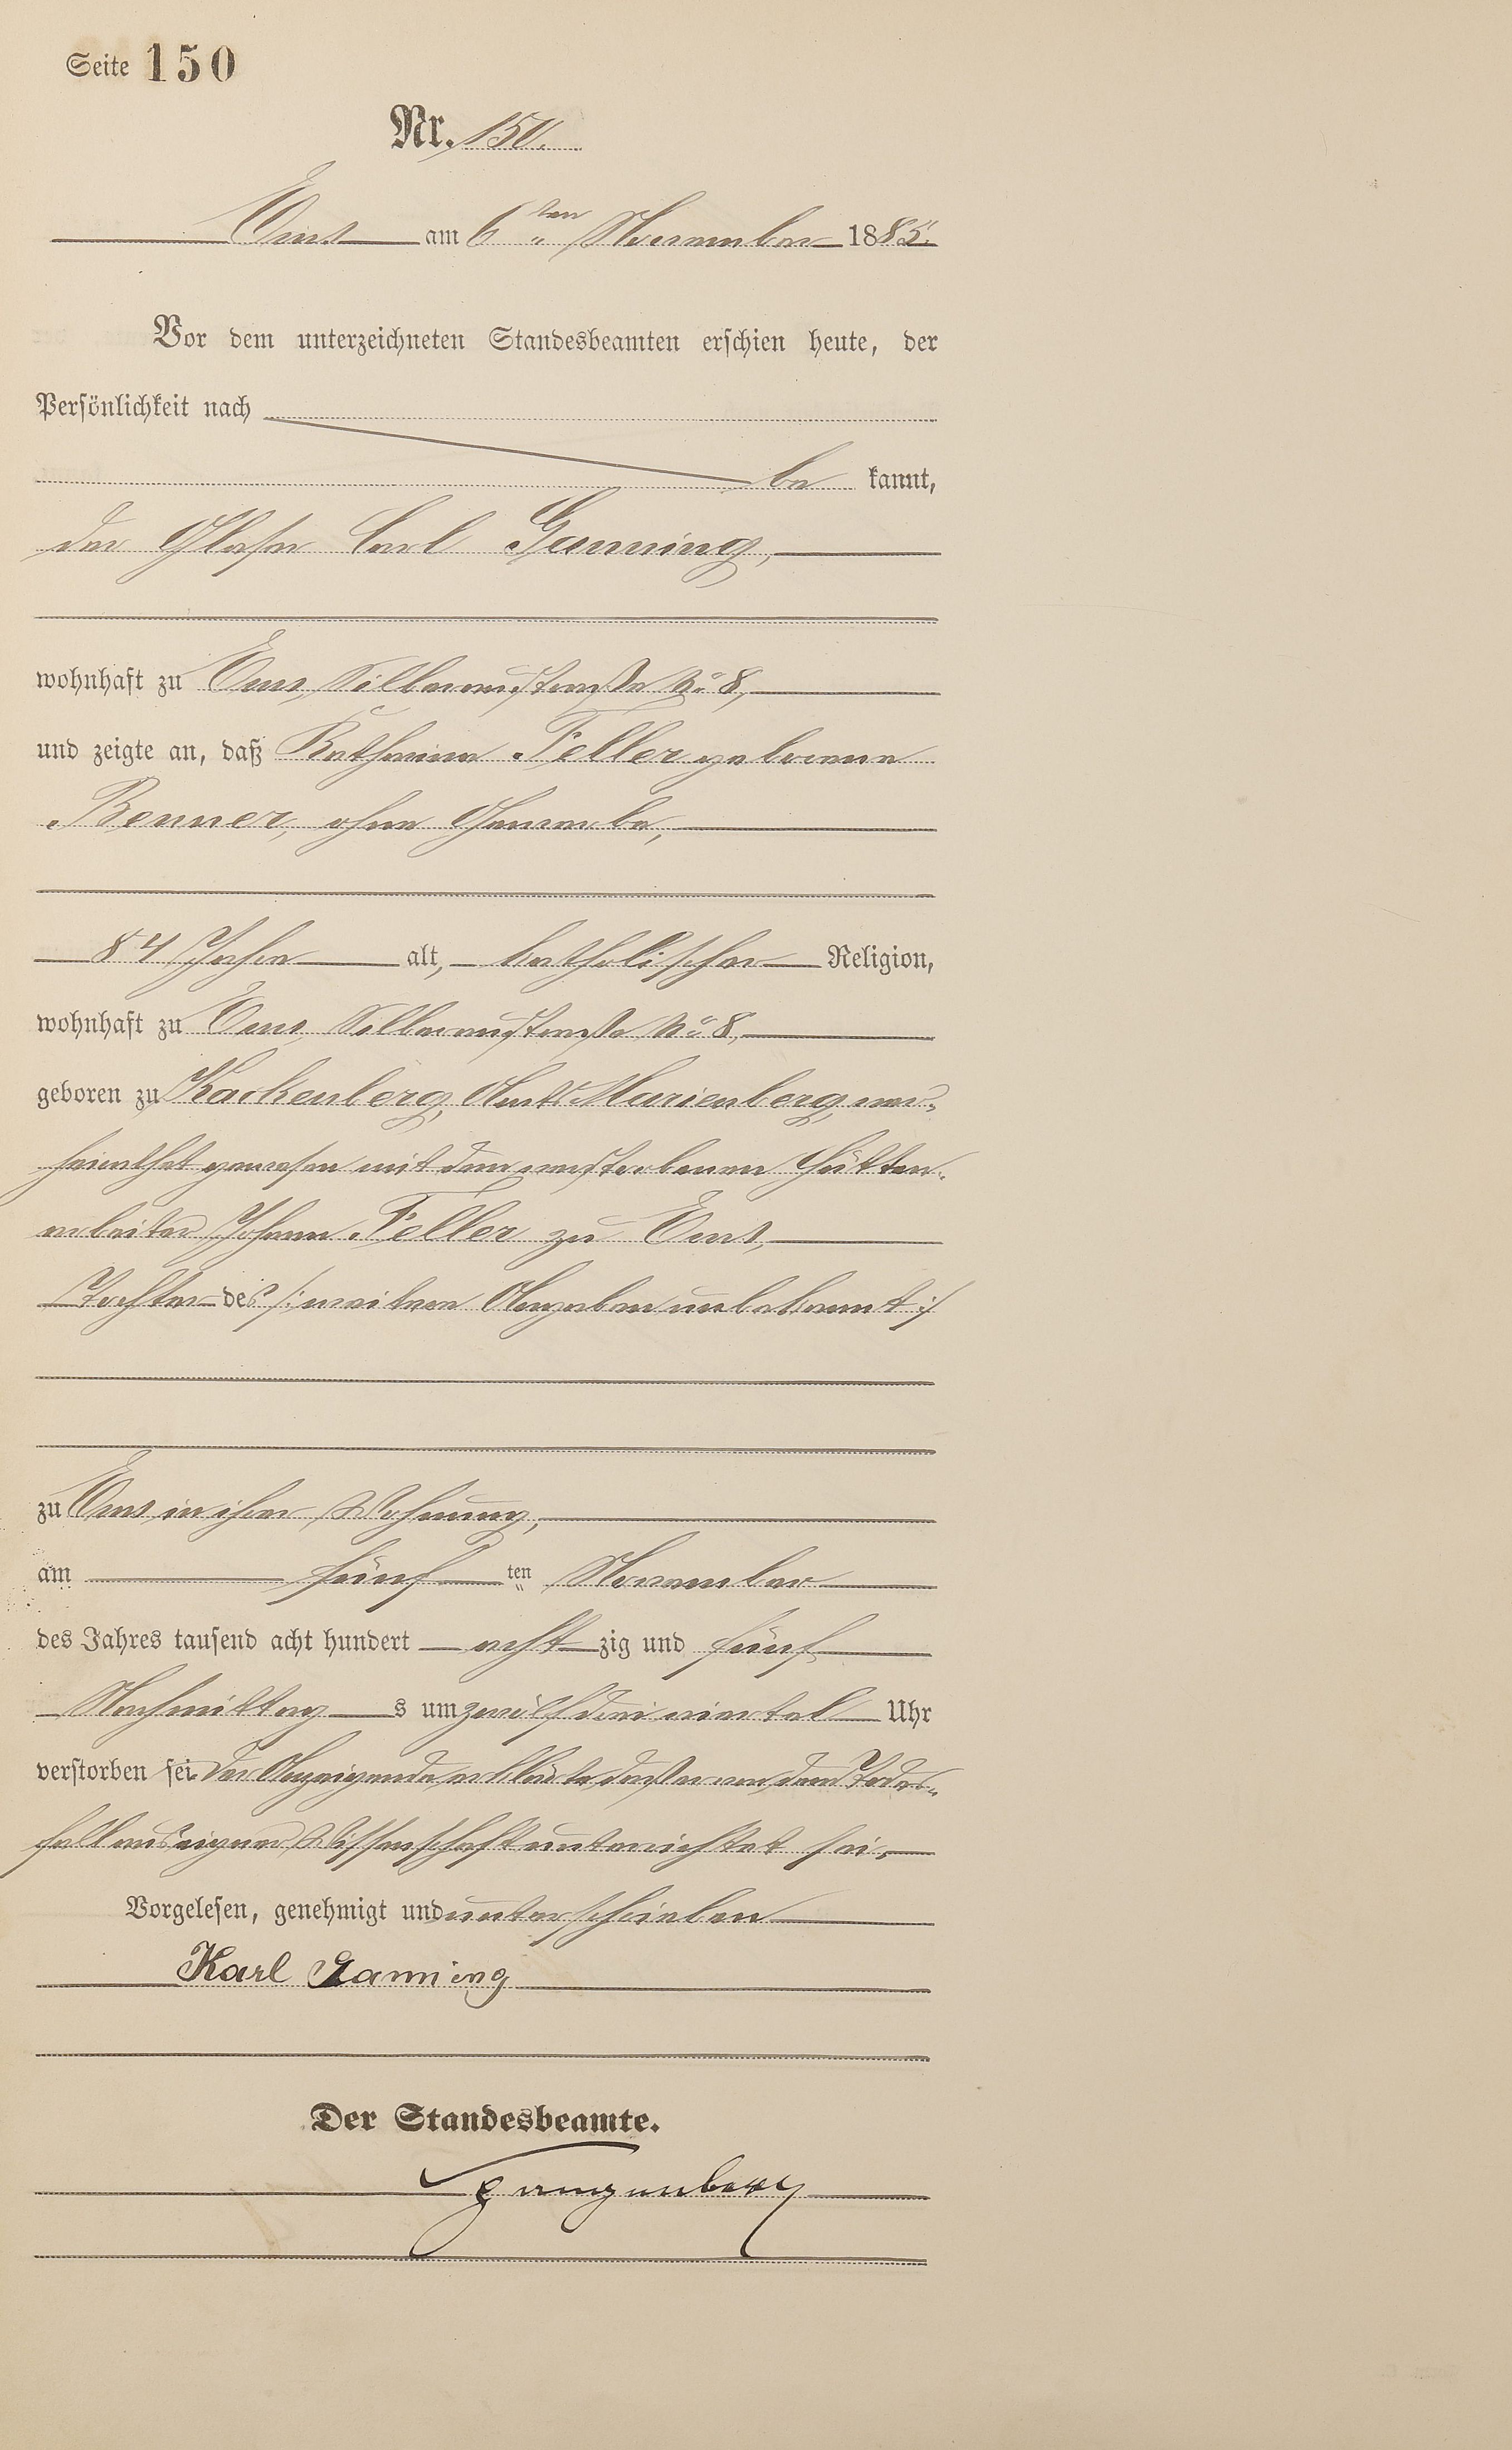 Seite 150
Nr. 150.
Ems am 6ten November 1885.
Vor dem unterzeichneten Standesbeamten erschien heute, der
Persönlichkeit nach
be kannt,
der Glaser Carl Ganning,
wohnhaft zu Ems, Silberaustraße No 8,
und zeigte an, daß Katharina Feller geborene
Benner, ohne Gewerbe,
84 Jahre alt, katholischer Religion,
wohnhaft zu Ems, Silberaustraße No 8,
geboren zu Kackenberg, Amts Marienberg, ver-
heirathet gewesen mit dem verstorbenen Hütten-
arbeiter Johann Feller zu Ems,
Tochter des /: weitere Angaben unbekannt :/
zu Ems in ihrer Wohnung,
am fünf ten November
des Jahres tausend acht hundert acht zig und fünf
Nachmittag s um zwölf drei viertel Uhr
verstorben sei. Der Anzeigende erklärte, daß er von dem Todes-
fall aus eigener Wissenschaft unterrichtet sei.
Vorgelesen, genehmigt und unterschrieben
Karl Ganning
Der Standesbeamte.